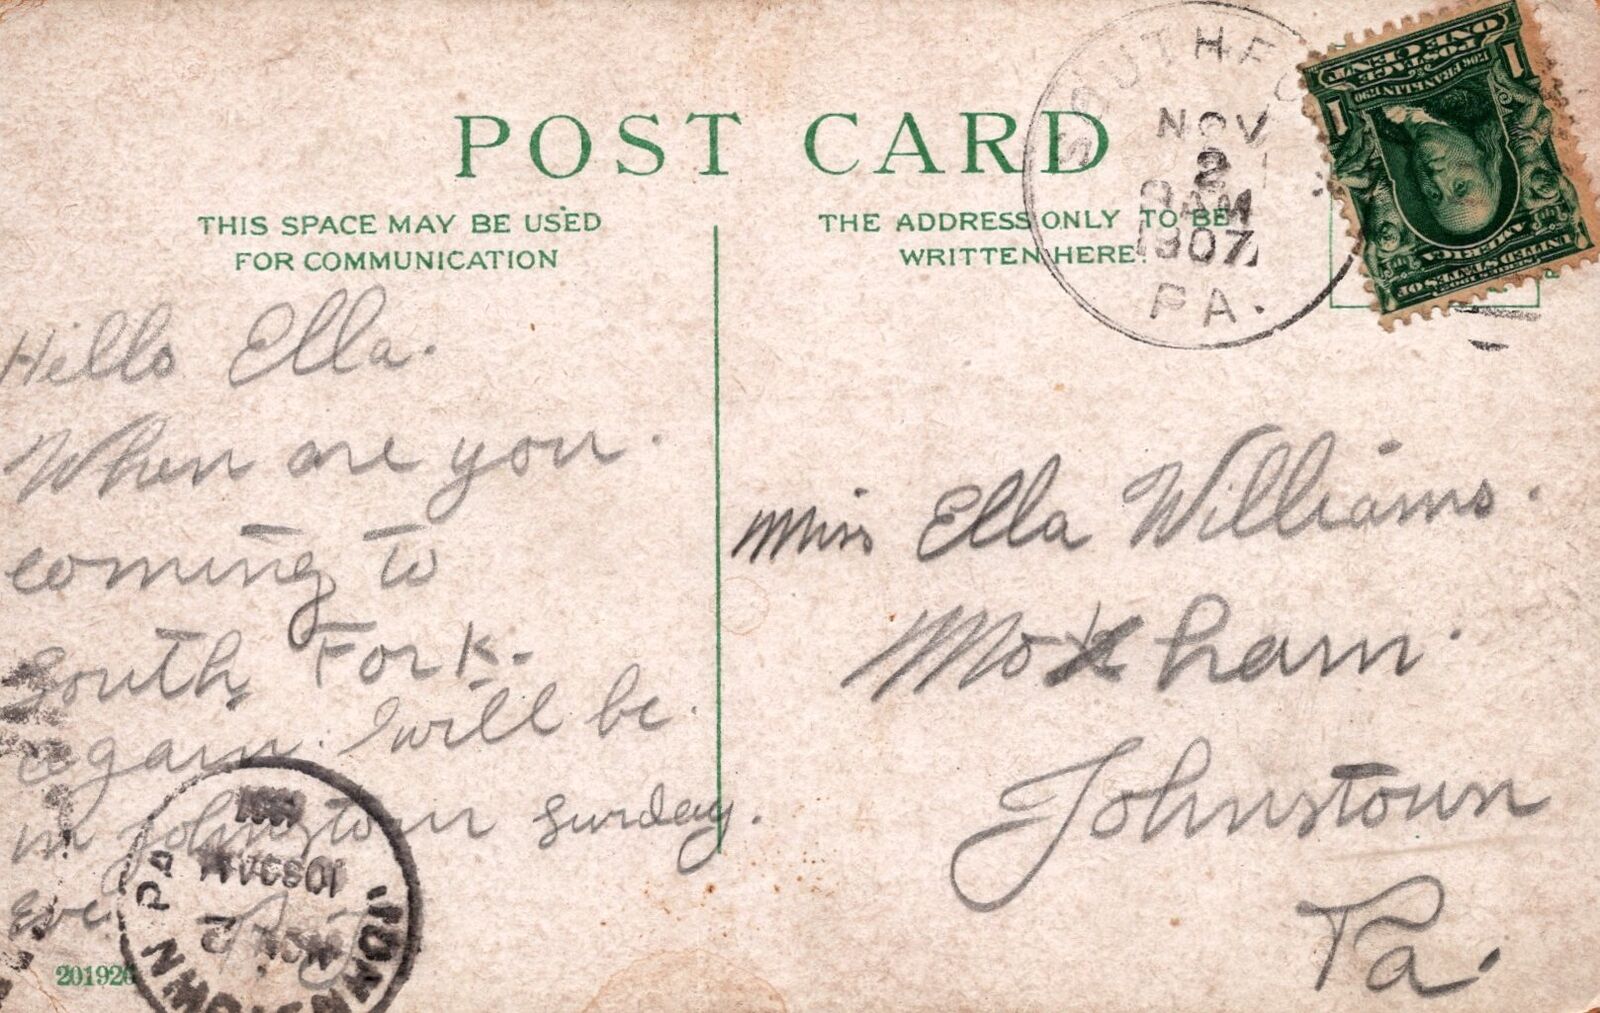 POST CARD
THIS SPACE MAY BE USED
FOR COMMUNICATION
Hello Ella.
When are you.
coming to
South Fork.
again. I will be.
in Johnstown Sunday.
Eve.
201926
THE ADDRESS ONLY TO BE
WRITTEN HERE.
SOUTH FO
NOV
2
AM
1907
PA.
1 1
POSTAGE
ONE CENT
1706 FRANKLIN 1790
SERIES 1902
UNITED STATES OF
AMERICA
Miss Ella Williams.
Moxham.
Johnstown
Pa.
JOHNSTOWN PA
NOV 2
10 30 AM